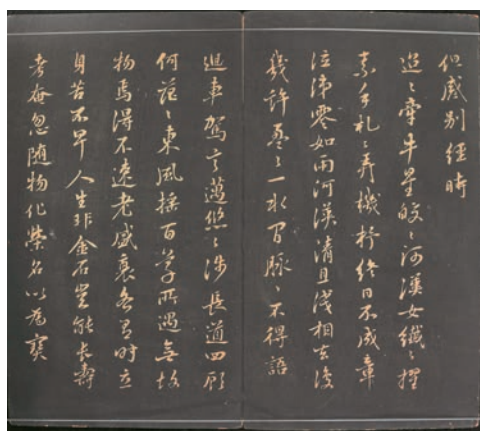 但感別經時
迢々牽牛星皎々河漢女纖々擢
素手札々弄機杼終日不成章
泣涕零如雨河漢清且淺相去復
幾許盈々一水間脉々不得語
迴車駕言邁悠々涉長道四顧
何茫々東風搖百草所遇無故
物焉得不速老盛衰各有時立
身苦不早人生非金石豈能長壽
考奄忽隨物化榮名以為寶